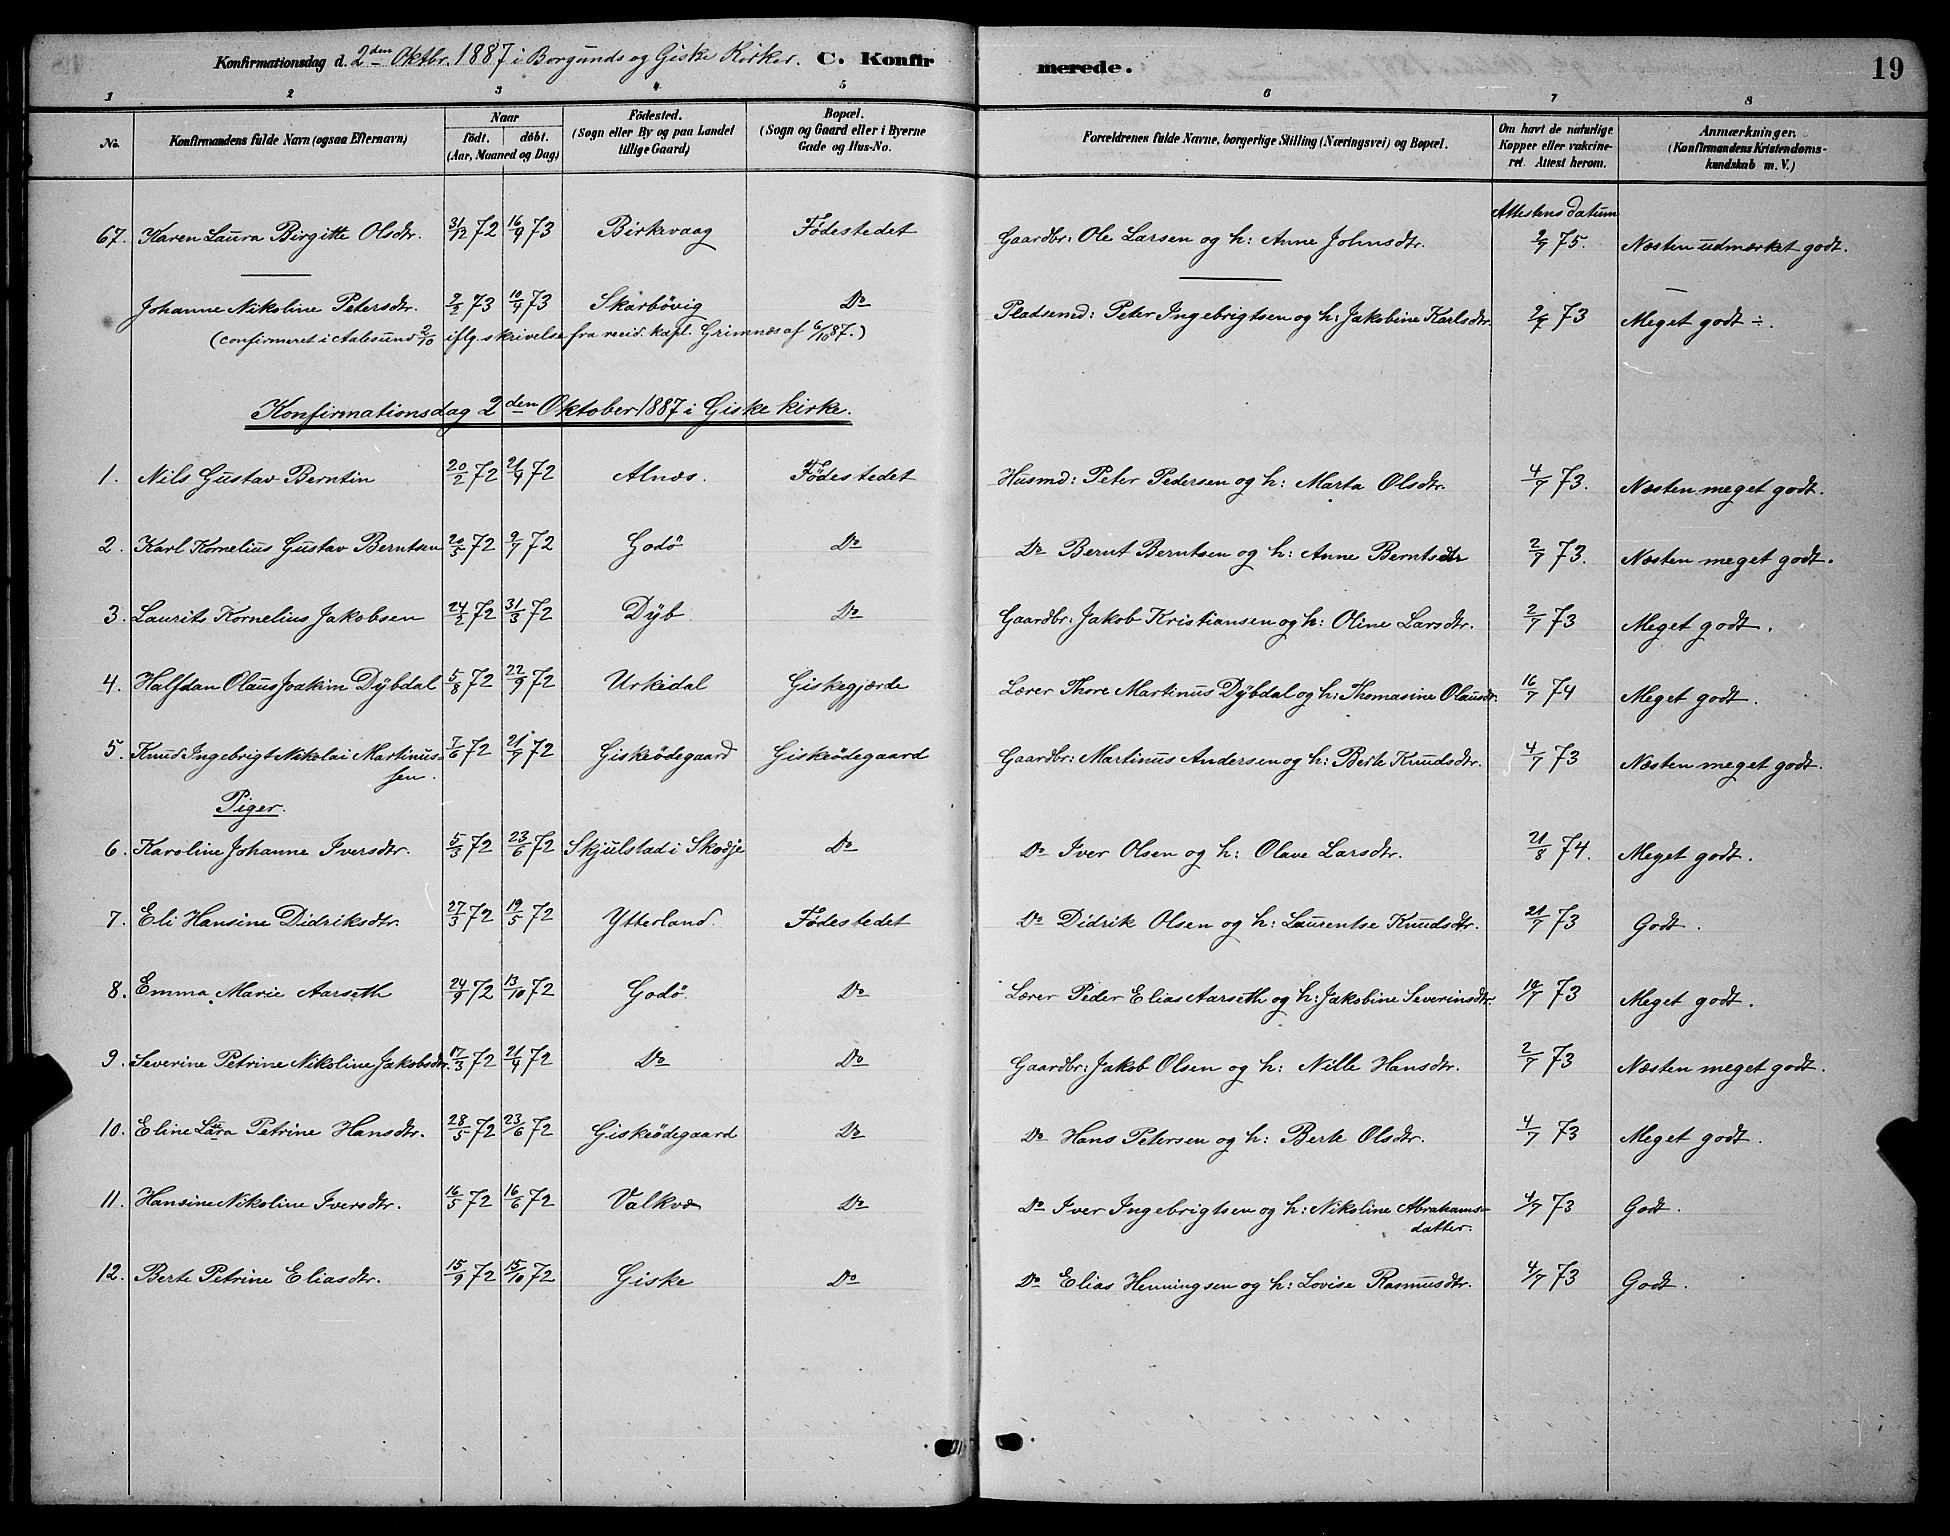 Konfirmationsdag d. 2den Oktbr. 1887 i Borgunds og Giske Kirker. C. Konfirmerede. 19
1 2 3 4 5 6 7 8
No. Konfirmandens fulde Navn (ogsaa Efternavn) Naar født. døbt. (Aar, Maaned og Dag) Fødested. (Sogn eller By og paa Landet tillige Gaard) Bopæl. (Sogn og Gaard eller i Byerne Gade og Hus-No. Forældrenes fulde Navne, borgerlige Stilling (Næringsvei) og Bopæl. Om havt de naturlige Kopper eller vakcineret. Attest herom. Anmærkninger. (Konfirmandens Kristendomskundskab m. V.)
Attestens datum
67. Karen Laura Birgitte Olsdtr. 31/12 72 16/9 73 Birkevaag Fødestedet Gaardbr: Ole Larsen og h: Anne Johnsdtr. 2/9 75. Næsten udmærket godt.
Johanne Nikoline Petersdtr. 2/2 73 10/4 73 Skarbövig Do Pladsmd: Peter Ingebrigtsen og h: Jakobine Karlsdtr. 2/7 73 Meget godt ÷.
(confirmeret i Aalesund 2/10 iflg. skrivelse fra resid. kapl. Grimnæs af 6/10 87.)
Konfirmationsdag 2den Oktober 1887 i Giske kirke.
1. Nils Gustav Berntin 20/2 72 21/4 72 Alnæs. Födestedet Husmd: Peter Pedersen og h: Marta Olsdtr. 4/7 73. Næsten meget godt.
2. Karl Kornelius Gustav Berntsen 20/5 72 9/7 72 Godö Do Do Bernt Berntsen og h: Anne Berntsdtr 2/7 73. Næsten meget godt.
3. Laurits Kornelius Jakobsen 24/2 72 31/3 72 Dyb. Do Gaardbr: Jakob Kristiansen og h: Oline Larsdtr. 2/7 73 Meget godt.
4. Halfdan Olaus Joakim Dybdal 5/8 72 22/9 72 Urkedal Giskegjærde Lærer Thore Martinus Dybdal og h: Thomasine Olausdtr. 16/7 74 Meget godt.
5. Knud Ingebrigt Nikolai Martinus- 7/6 72 21/9 72 Giskeödegaard Giskeödegaard Gaardbr: Martinus Andersen og h: Berte Knudsdtr. 4/7 73 Næsten meget godt.
sen.
Piger.
6. Karoline Johanne Iversdtr. 5/3 72 23/6 72 Skjulstad i Skodje Do Do Iver Olsen og h: Olave Larsdtr. 21/8 74. Meget godt.
7. Eli Hansine Didriksdtr. 27/3 72 19/5 72 Ytterland. Födestedet Do Didrik Olsen og h: Laurentse Knudsdtr. 21/7 73 Godt.
8. Emma Marie Aarseth 24/9 72 13/10 72 Godö. Do Lærer Peder Elias Aarseth og h: Jakobine Severinsdtr. 19/7 73 Meget godt.
9. Severine Petrine Nikoline Jakobsdtr. 17/3 72 21/4 72 Do Do Gaardbr: Jakob Olsen og h: Nille Hansdtr. 2/7 73 Næsten meget godt.
10. Eline Lara Petrine Hansdtr. 28/5 72 23/6 72 Giskeödegaard Do Do Hans Petersen og h: Berte Olsdtr. 4/7 73 Meget godt.
11. Hansine Nikoline Iversdtr. 16/5 72 16/6 72 Valkvæ Do Do Iver Ingebrigtsen og h: Nikoline Abrahams- 4/7 73 Godt.
datter.
12. Berte Petrine Eliasdtr. 15/9 72 15/10 72 Giske Do Do Elias Henningsen og h: Lovise Rasmusdtr. 4/7 73 Godt.